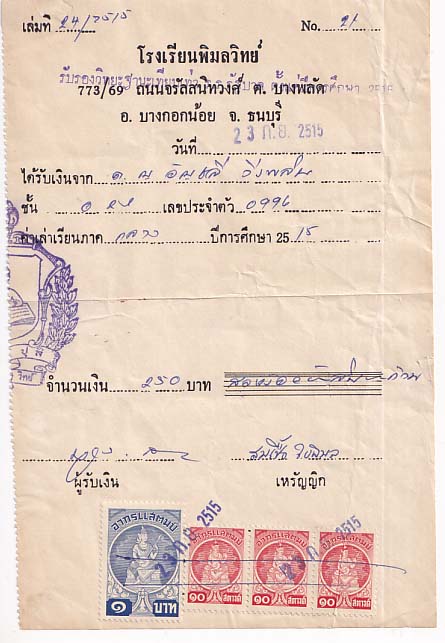 เล่มที่ 24/2515 No. 21
โรงเรียนพิมลวิทย์
รับรองวิทยะฐานะเทียบเท่า
773/69 ถนนจรัสสนิทวงศ์ ต. บางพลัด
อ. บางกอกน้อย จ. ธนบุรี
วันที่ 23 ก.ย. 2515
ได้รับเงินจาก ด.ญ อัญชลี
ชั้น เลขประจำตัว 0996
ค่าเล่าเรียนภาค กลาง ปีการศึกษา 2515
จำนวนเงิน 250 บาท
ผู้รับเงิน เหรัญญิก
อากรแสตมป์ อากรแสตมป์ อากรแสตมป์ อากรแสตมป์
23 ก.ย. 2515
๑ บาท ๑๐ สตางค์ ๑๐ สตางค์ ๑๐ สตางค์